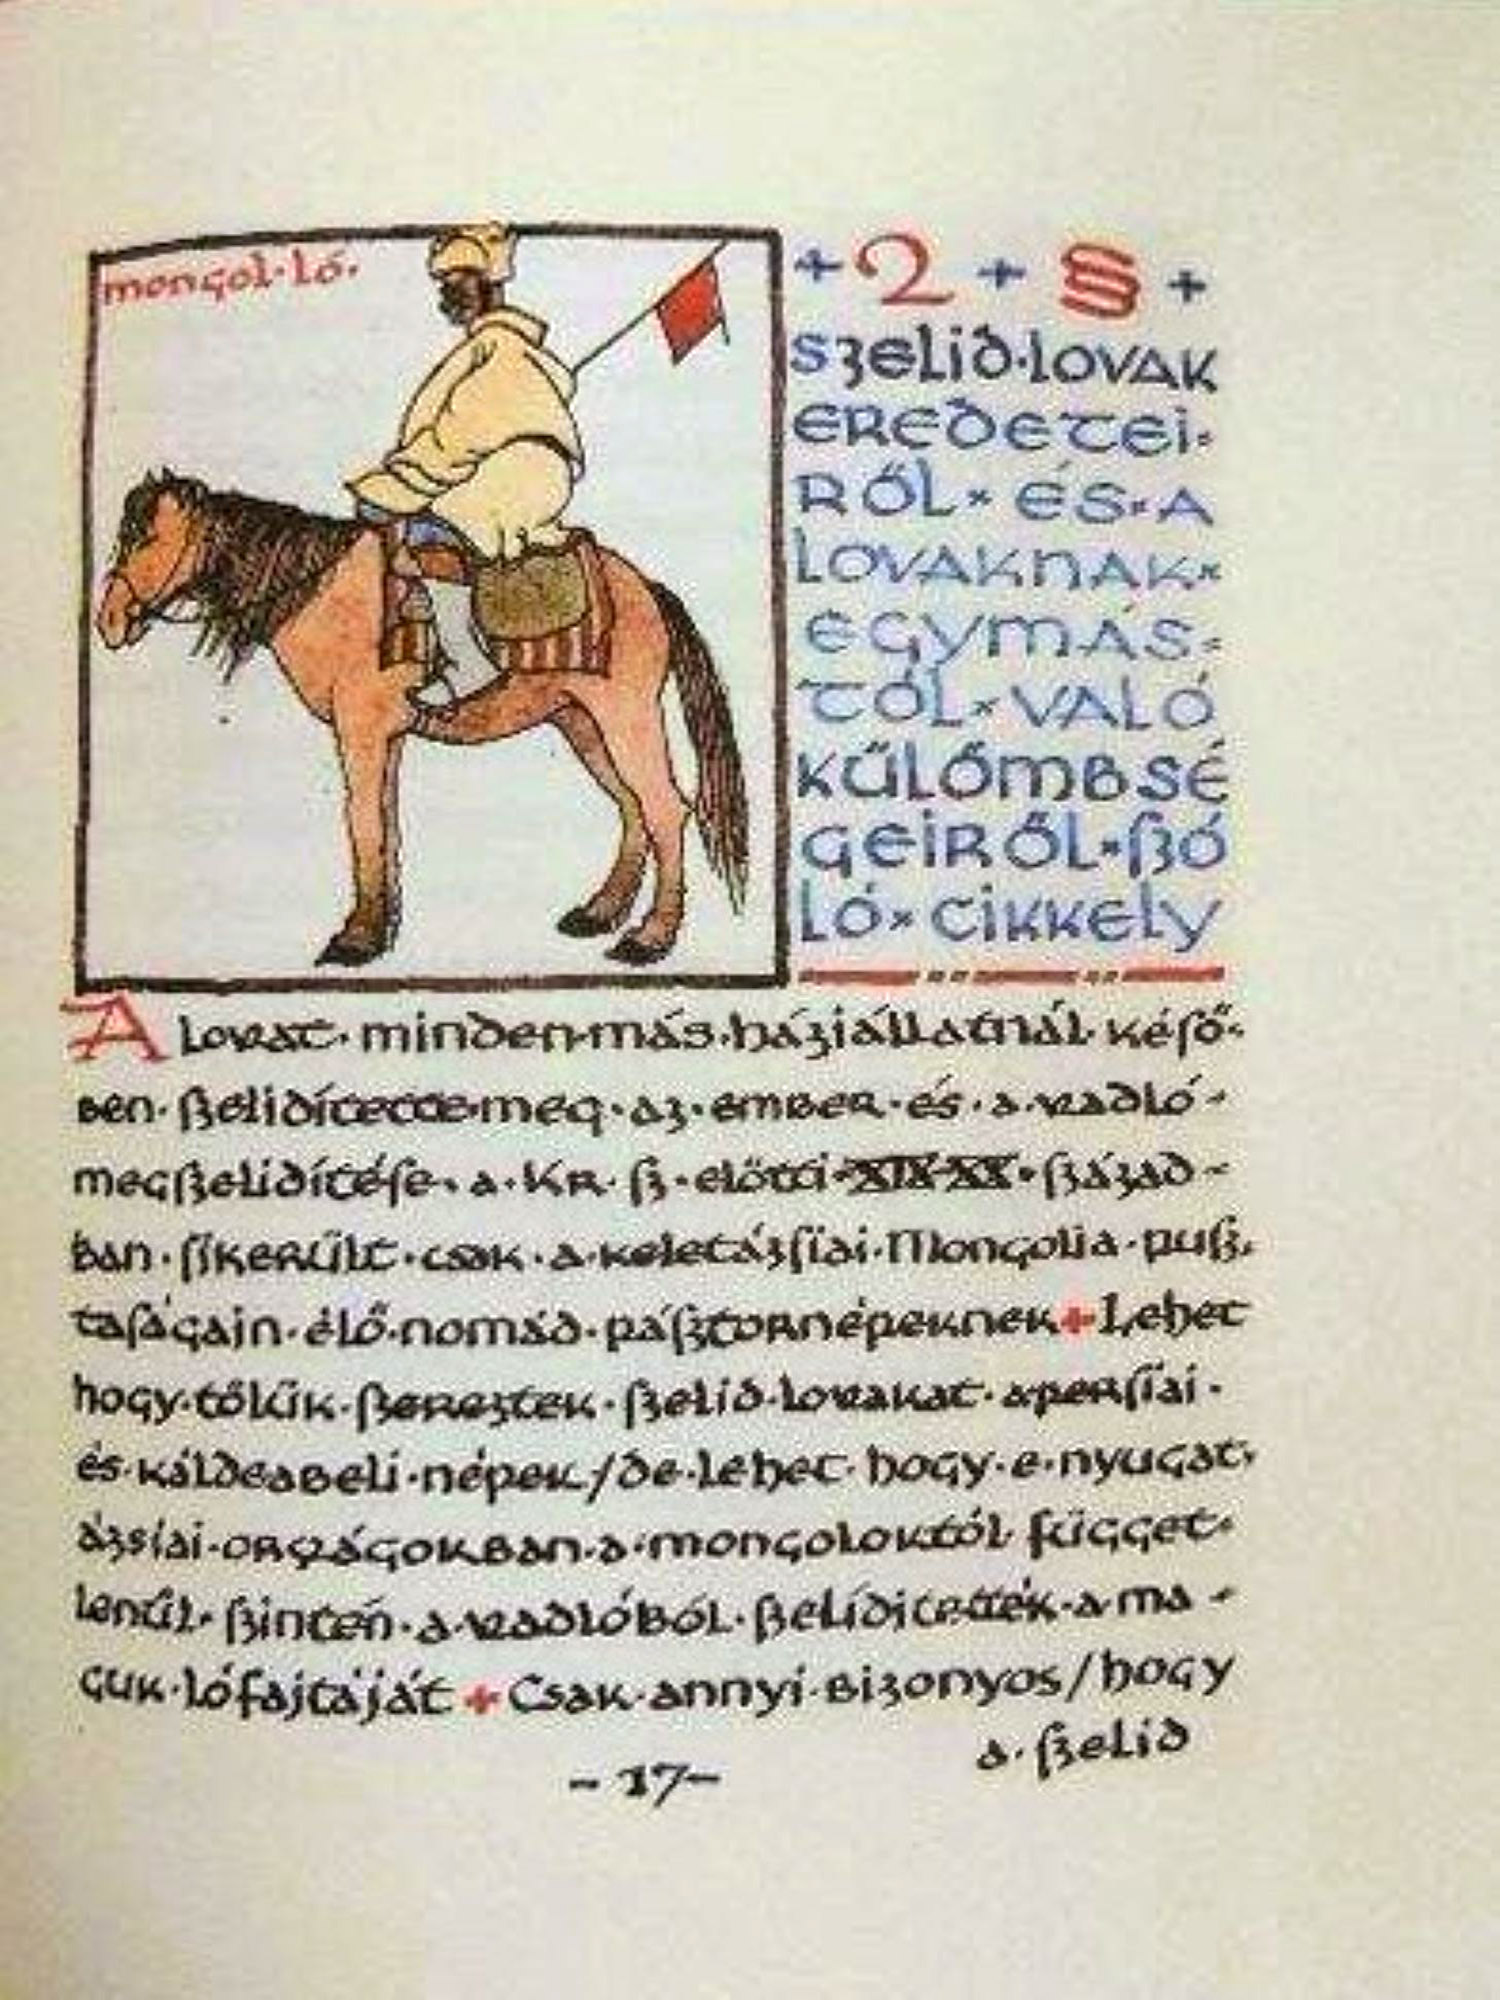 mongol·ló·
+ 2 + § +
szelid·lovak
eredetei-
ről× és×a
lovaknak×
egymás=
tól×való
kűlőmbsé
geiről×szó
ló×cikkely
A lovat·minden·más·háziállatnál·késő-
ben·szelidítette·meg·az·ember·és·a·vadló-
megszelidítése·a·Kr·sz·előtti·XIX-XX·század-
ban·sikerűlt·csak·a·keletázsiai·Mongolia·pusz-
taságain·élő·nomád·pásztornépeknek+Lehet
hogy·tőlűk·szereztek·szelid·lovakat·a·persiai·
és·káldeabeli·népek/de·lehet·hogy·e·nyugat-
ázsiai·országokban·a·mongoloktól·függet-
lenűl·szintén·a·vadlóból·szelíditették·a·ma-
guk·lófajtáját+Csak·annyi·bizonyos/hogy
a·szelid
-17-